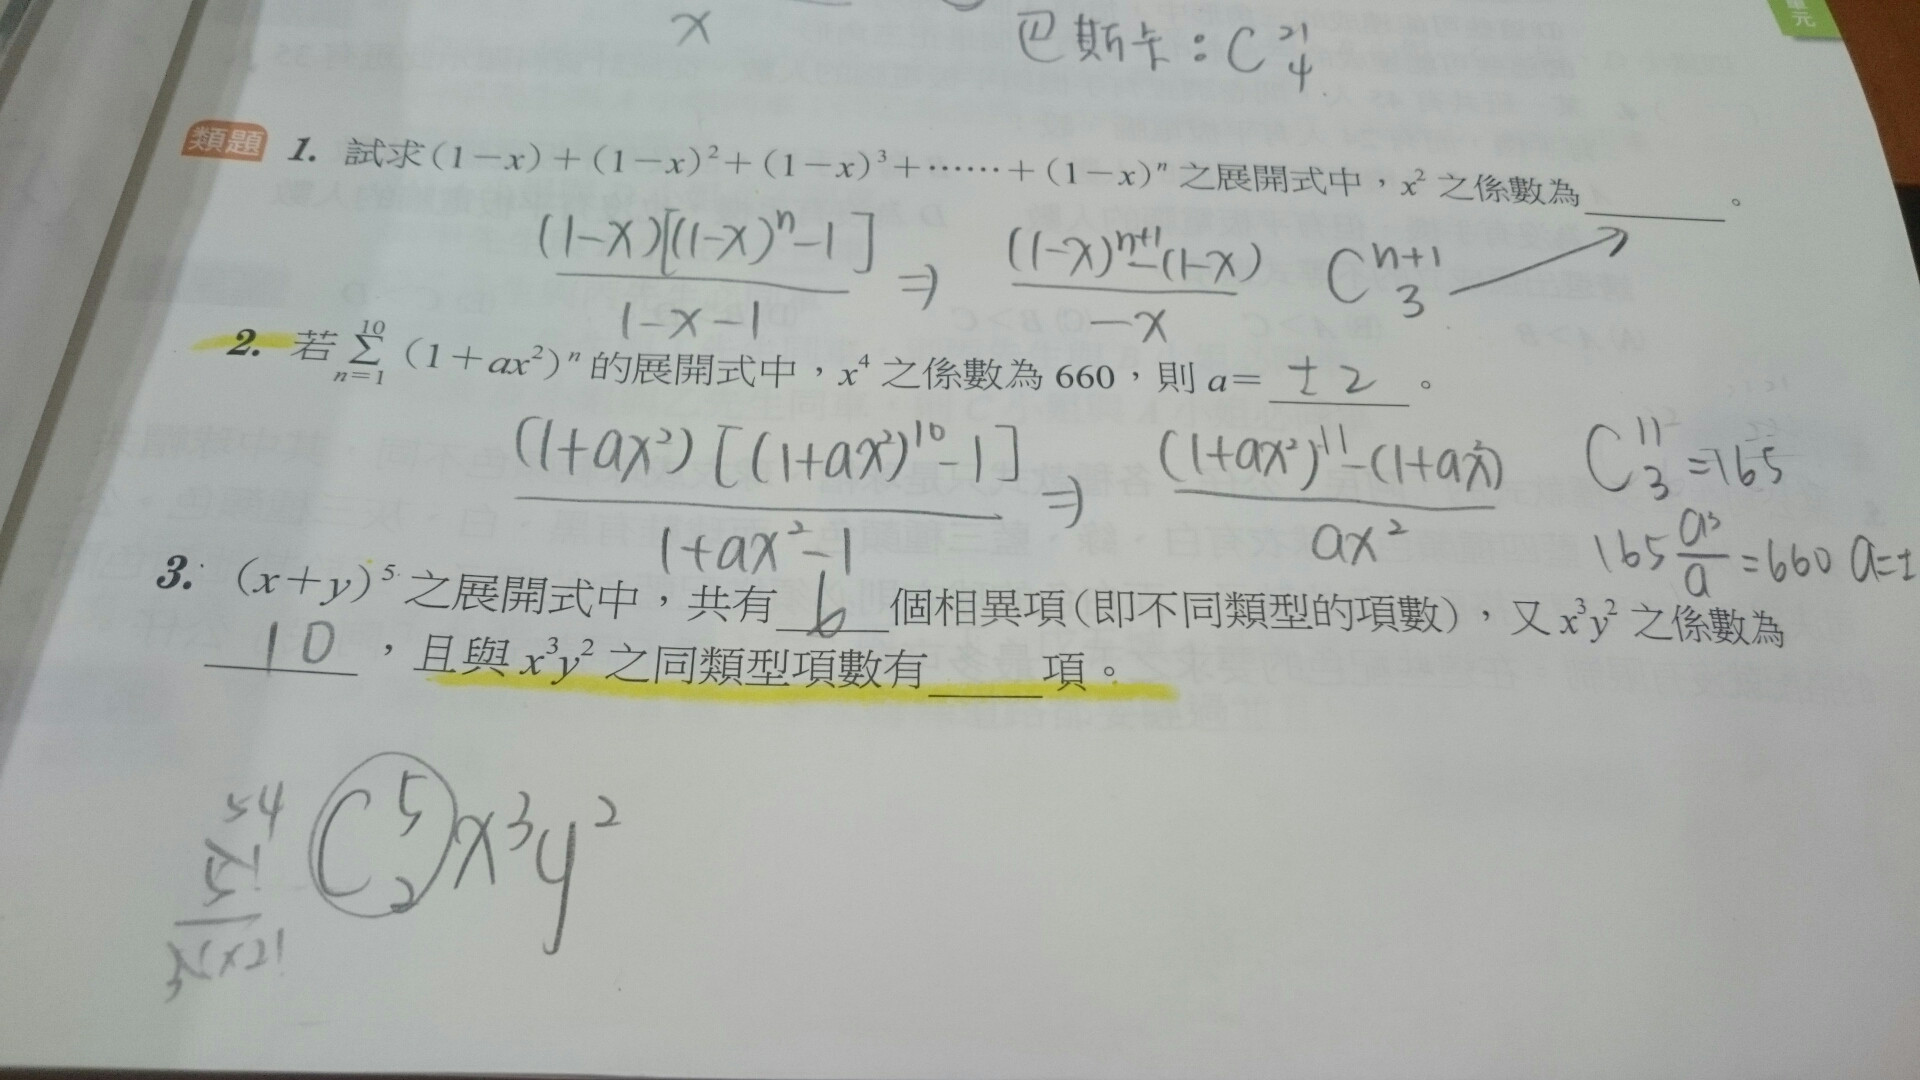 單元
x 巴斯卡：C²¹₄
類題 1. 試求(1－x)＋(1－x)²＋(1－x)³＋……＋(1－x)ⁿ 之展開式中，x² 之係數為______。
(1-x)[(1-x)ⁿ-1] / 1-x-1 ⇒ (1-x)ⁿ⁺¹-(1-x) / -x Cⁿ⁺¹₃
2. 若 Σ(n=1→10) (1＋ax²)ⁿ 的展開式中，x⁴ 之係數為 660，則 a＝ ±2 。
(1+ax²)[(1+ax²)¹⁰-1] / 1+ax²-1 ⇒ (1+ax²)¹¹-(1+ax²) / ax² C¹¹₃=165
165 a³/a =660 a=±
3. (x＋y)⁵ 之展開式中，共有 6 個相異項(即不同類型的項數)，又 x³y² 之係數為
10 ，且與 x³y² 之同類型項數有____項。
C⁵₂x³y²
54
5!
3!×2!